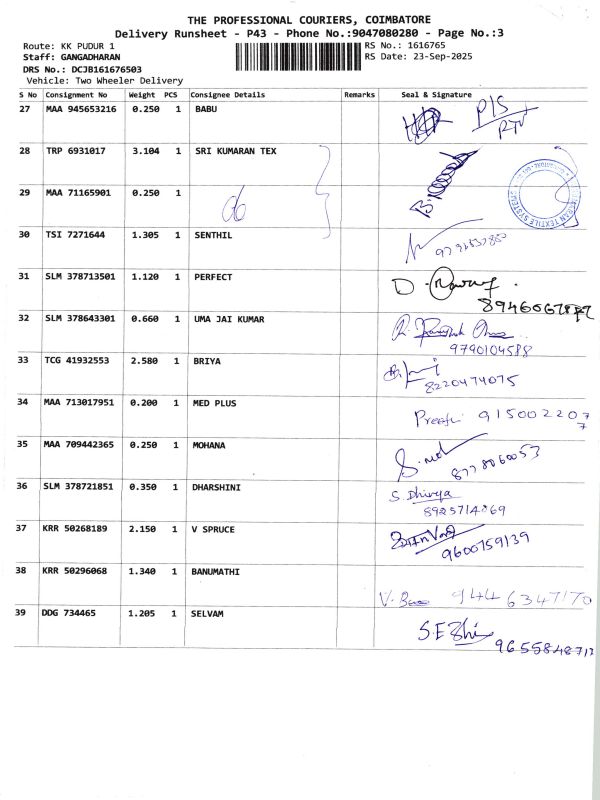 THE PROFESSIONAL COURIERS, COIMBATORE
Delivery Runsheet - P43 - Phone No.:9047080280 - Page No.:3
Route: KK PUDUR 1 RS No.: 1616765
Staff: GANGADHARAN RS Date: 23-Sep-2025
DRS No.: DCJB161676503
Vehicle: Two Wheeler Delivery
S No Consignment No Weight PCS Consignee Details Remarks Seal & Signature
27 MAA 945653216 0.250 1 BABU
28 TRP 6931017 3.104 1 SRI KUMARAN TEX
29 MAA 71165901 0.250 1
30 TSI 7271644 1.305 1 SENTHIL
31 SLM 378713501 1.120 1 PERFECT
32 SLM 378643301 0.660 1 UMA JAI KUMAR
9790104588
33 TCG 41932553 2.580 1 BRIYA
8220474075
34 MAA 713017951 0.200 1 MED PLUS
Preethi 9150022077
35 MAA 709442365 0.250 1 MOHANA
8778060053
36 SLM 378721851 0.350 1 DHARSHINI
S. Dhivya
37 KRR 50268189 2.150 1 V SPRUCE
9600759139
38 KRR 50296068 1.340 1 BANUMATHI
9446347170
39 DDG 734465 1.205 1 SELVAM